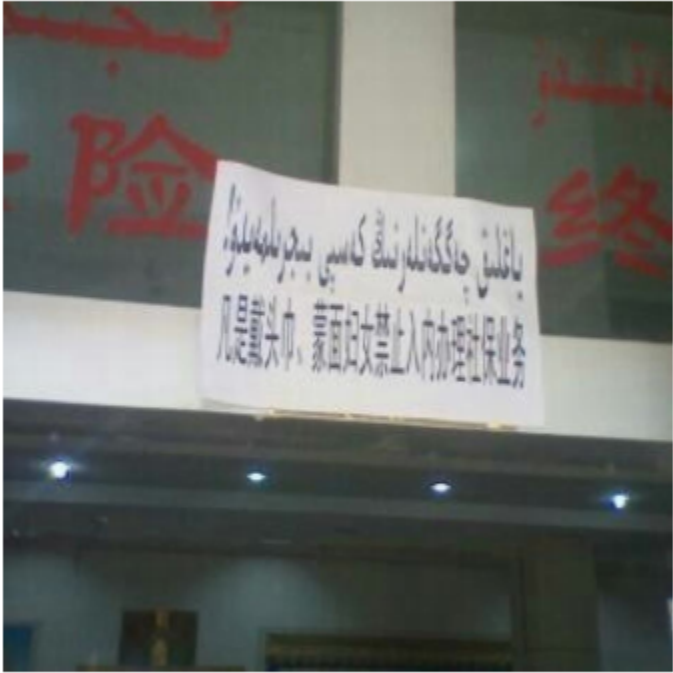 险
终
ياغلىق چەگگەنلەرنىڭ كەسپى بىجىرىلمەيدۇ!
凡是戴头巾、蒙面妇女禁止入内办理社保业务